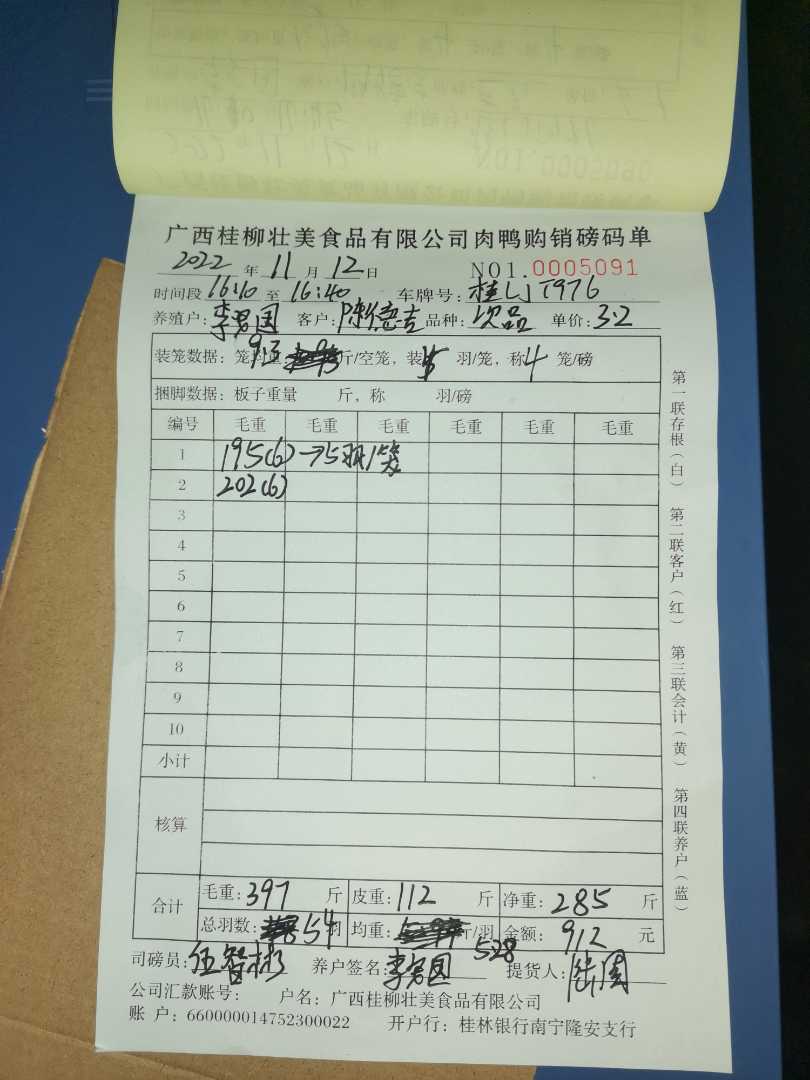 广西桂柳壮美食品有限公司肉鸭购销磅码单
2022 年 11 月 12 日 NO1.0005091
时间段 16:10 至 16:40 车牌号: 桂 T976
养殖户: 李 国 客户: 陈德吉 品种: 次品 单价: 3.2
装笼数据: 笼均重: 9.3 斤/空笼, 装 5 羽/笼, 称 4 笼/磅
捆脚数据: 板子重量 斤, 称 羽/磅
编号 毛重 毛重 毛重 毛重 毛重 毛重
1 195(6)→5羽1笼
2 202(6)
3
4
5
6
7
8
9
10
小计
核算
合计 毛重: 397 斤 皮重: 112 斤 净重: 285 斤
总羽数: 54 羽 均重: 5.28 斤/羽 金额: 912 元
司磅员: 伍智 养户签名: 李 国 提货人:
公司汇款账号: 户名: 广西桂柳壮美食品有限公司
账 户: 660000014752300022 开户行: 桂林银行南宁隆安支行
第一联存根(白) 第二联客户(红) 第三联会计(黄) 第四联养户(蓝)